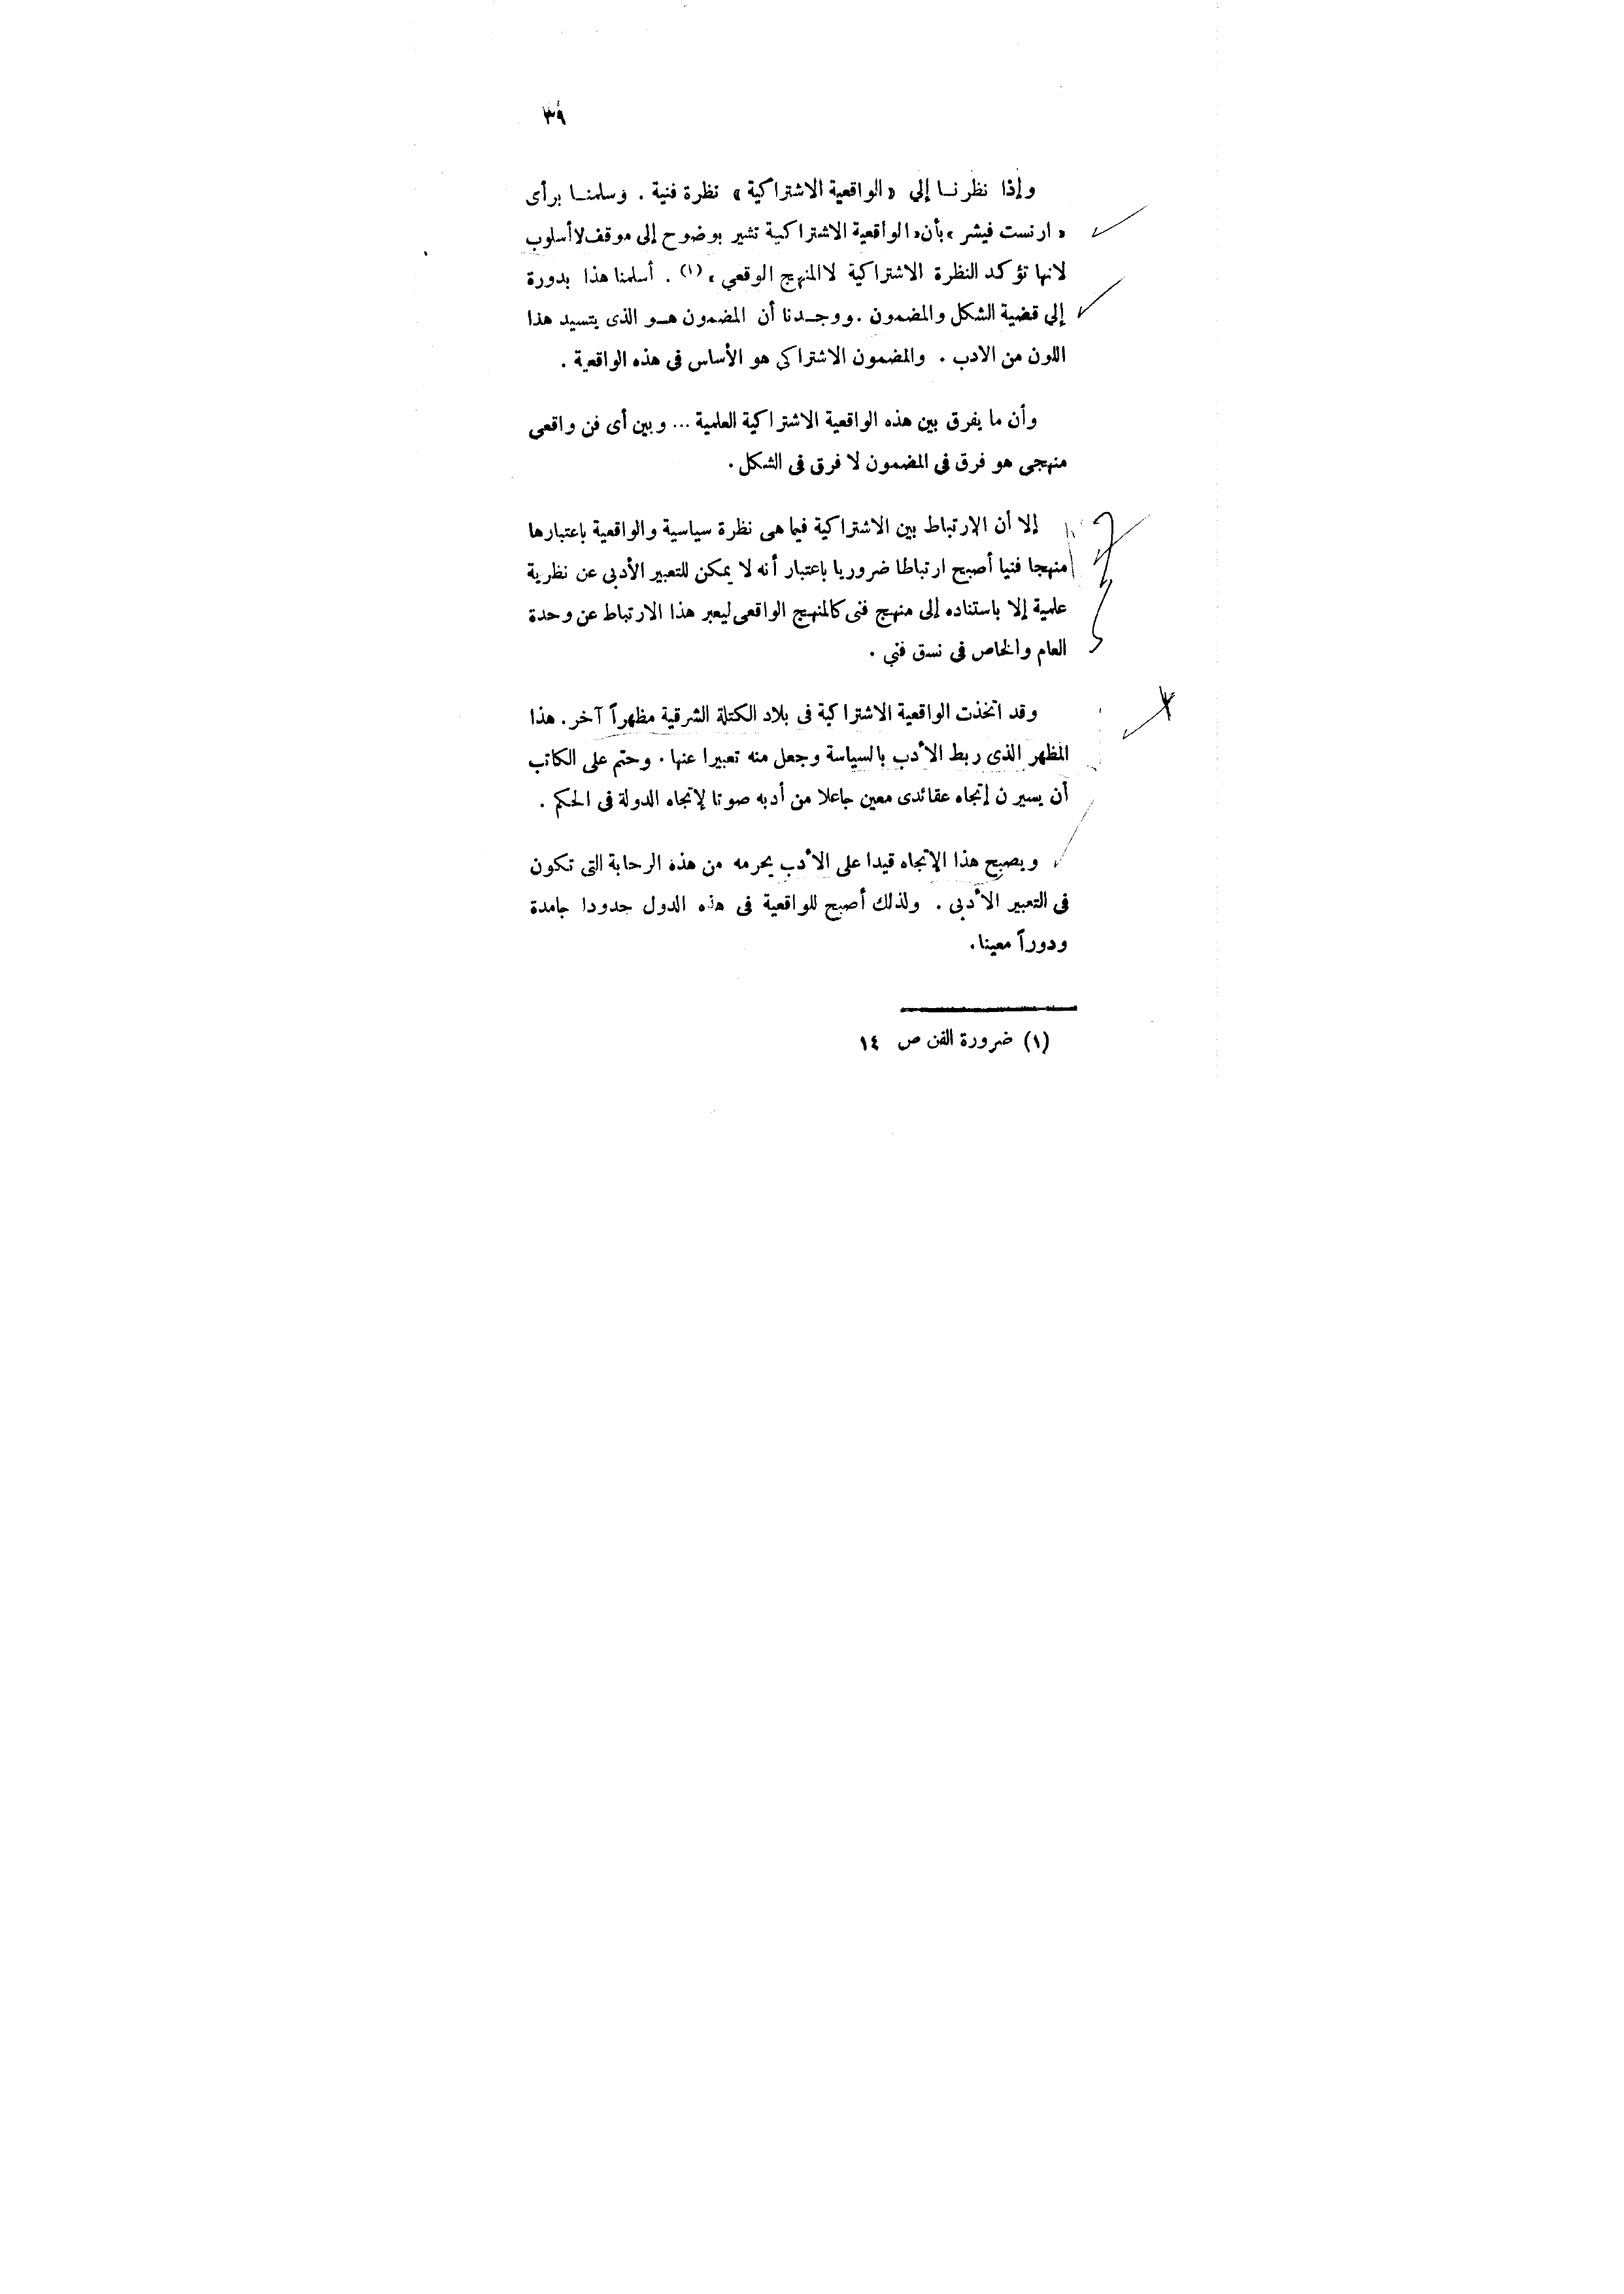 ٣٩
وإذا نظرنا إلي «الواقعية الاشتراكية» نظرة فنية . وسلمنا برأى
« ارنست فيشر » بأن «الواقعية الاشتراكية تشير بوضوح إلى موقف لا أسلوب
لانها تؤكد النظرة الاشتراكية لا المنهج الوقعي » (١) . أسلمنا هذا بدورة
إلي قضية الشكل والمضمون . ووجدنا أن المضمون هو الذى يتسيد هذا
اللون من الادب . والمضمون الاشتراكى هو الأساس فى هذه الواقعية .
وأن ما يفرق بين هذه الواقعية الاشتراكية العلمية ... وبين أى فن واقعى
منهجى هو فرق فى المضمون لا فرق فى الشكل .
إلا أن الإرتباط بين الاشتراكية فيما هى نظرة سياسية والواقعية باعتبارها
منهجا فنيا أصبح ارتباطا ضروريا باعتبار أنه لا يمكن للتعبير الأدبى عن نظرية
علمية إلا باستناده إلى منهج فنى كالمنهج الواقعى ليعبر هذا الارتباط عن وحدة
العام والخاص فى نسق فني .
وقد اتخذت الواقعية الاشتراكية فى بلاد الكتلة الشرقية مظهراً آخر . هذا
المظهر الذى ربط الأدب بالسياسة وجعل منه تعبيرا عنها . وحتم على الكاتب
أن يسير ن إتجاه عقائدى معين جاعلا من أدبه صوتا لإتجاه الدولة فى الحكم .
ويصبح هذا الإتجاه قيدا على الأدب يحرمه من هذه الرحابة التى تكون
فى التعبير الأدبى . ولذلك أصبح للواقعية فى هذه الدول حدودا جامدة
ودوراً معينا .
(١) ضرورة الفن ص ١٤